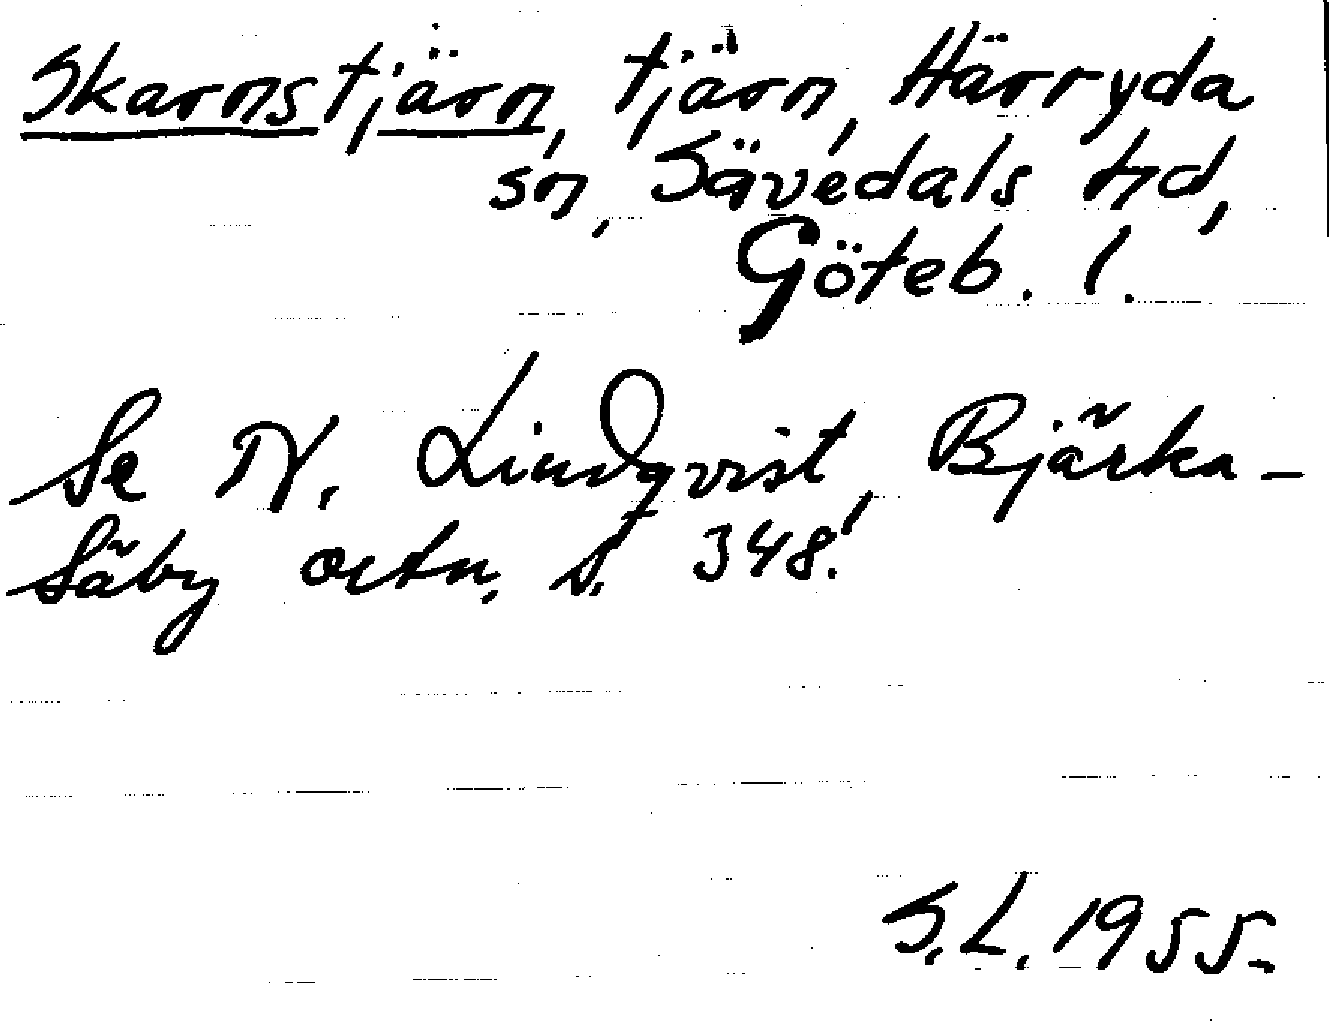 Skarnstjärn, tjärn, Härryda
sn, Sävedals hd,
Göteb. l.
Se N. Lindqvist, Bjärka-
Säby ortn. s. 348!
S.L. 1955.